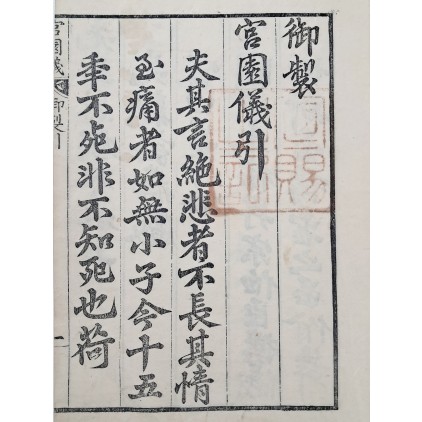 御製
宮園儀引
夫其言絶悲者不長其情
至痛者如無小子今十五
年不死非不知死也荷
宮園儀 御製引 一